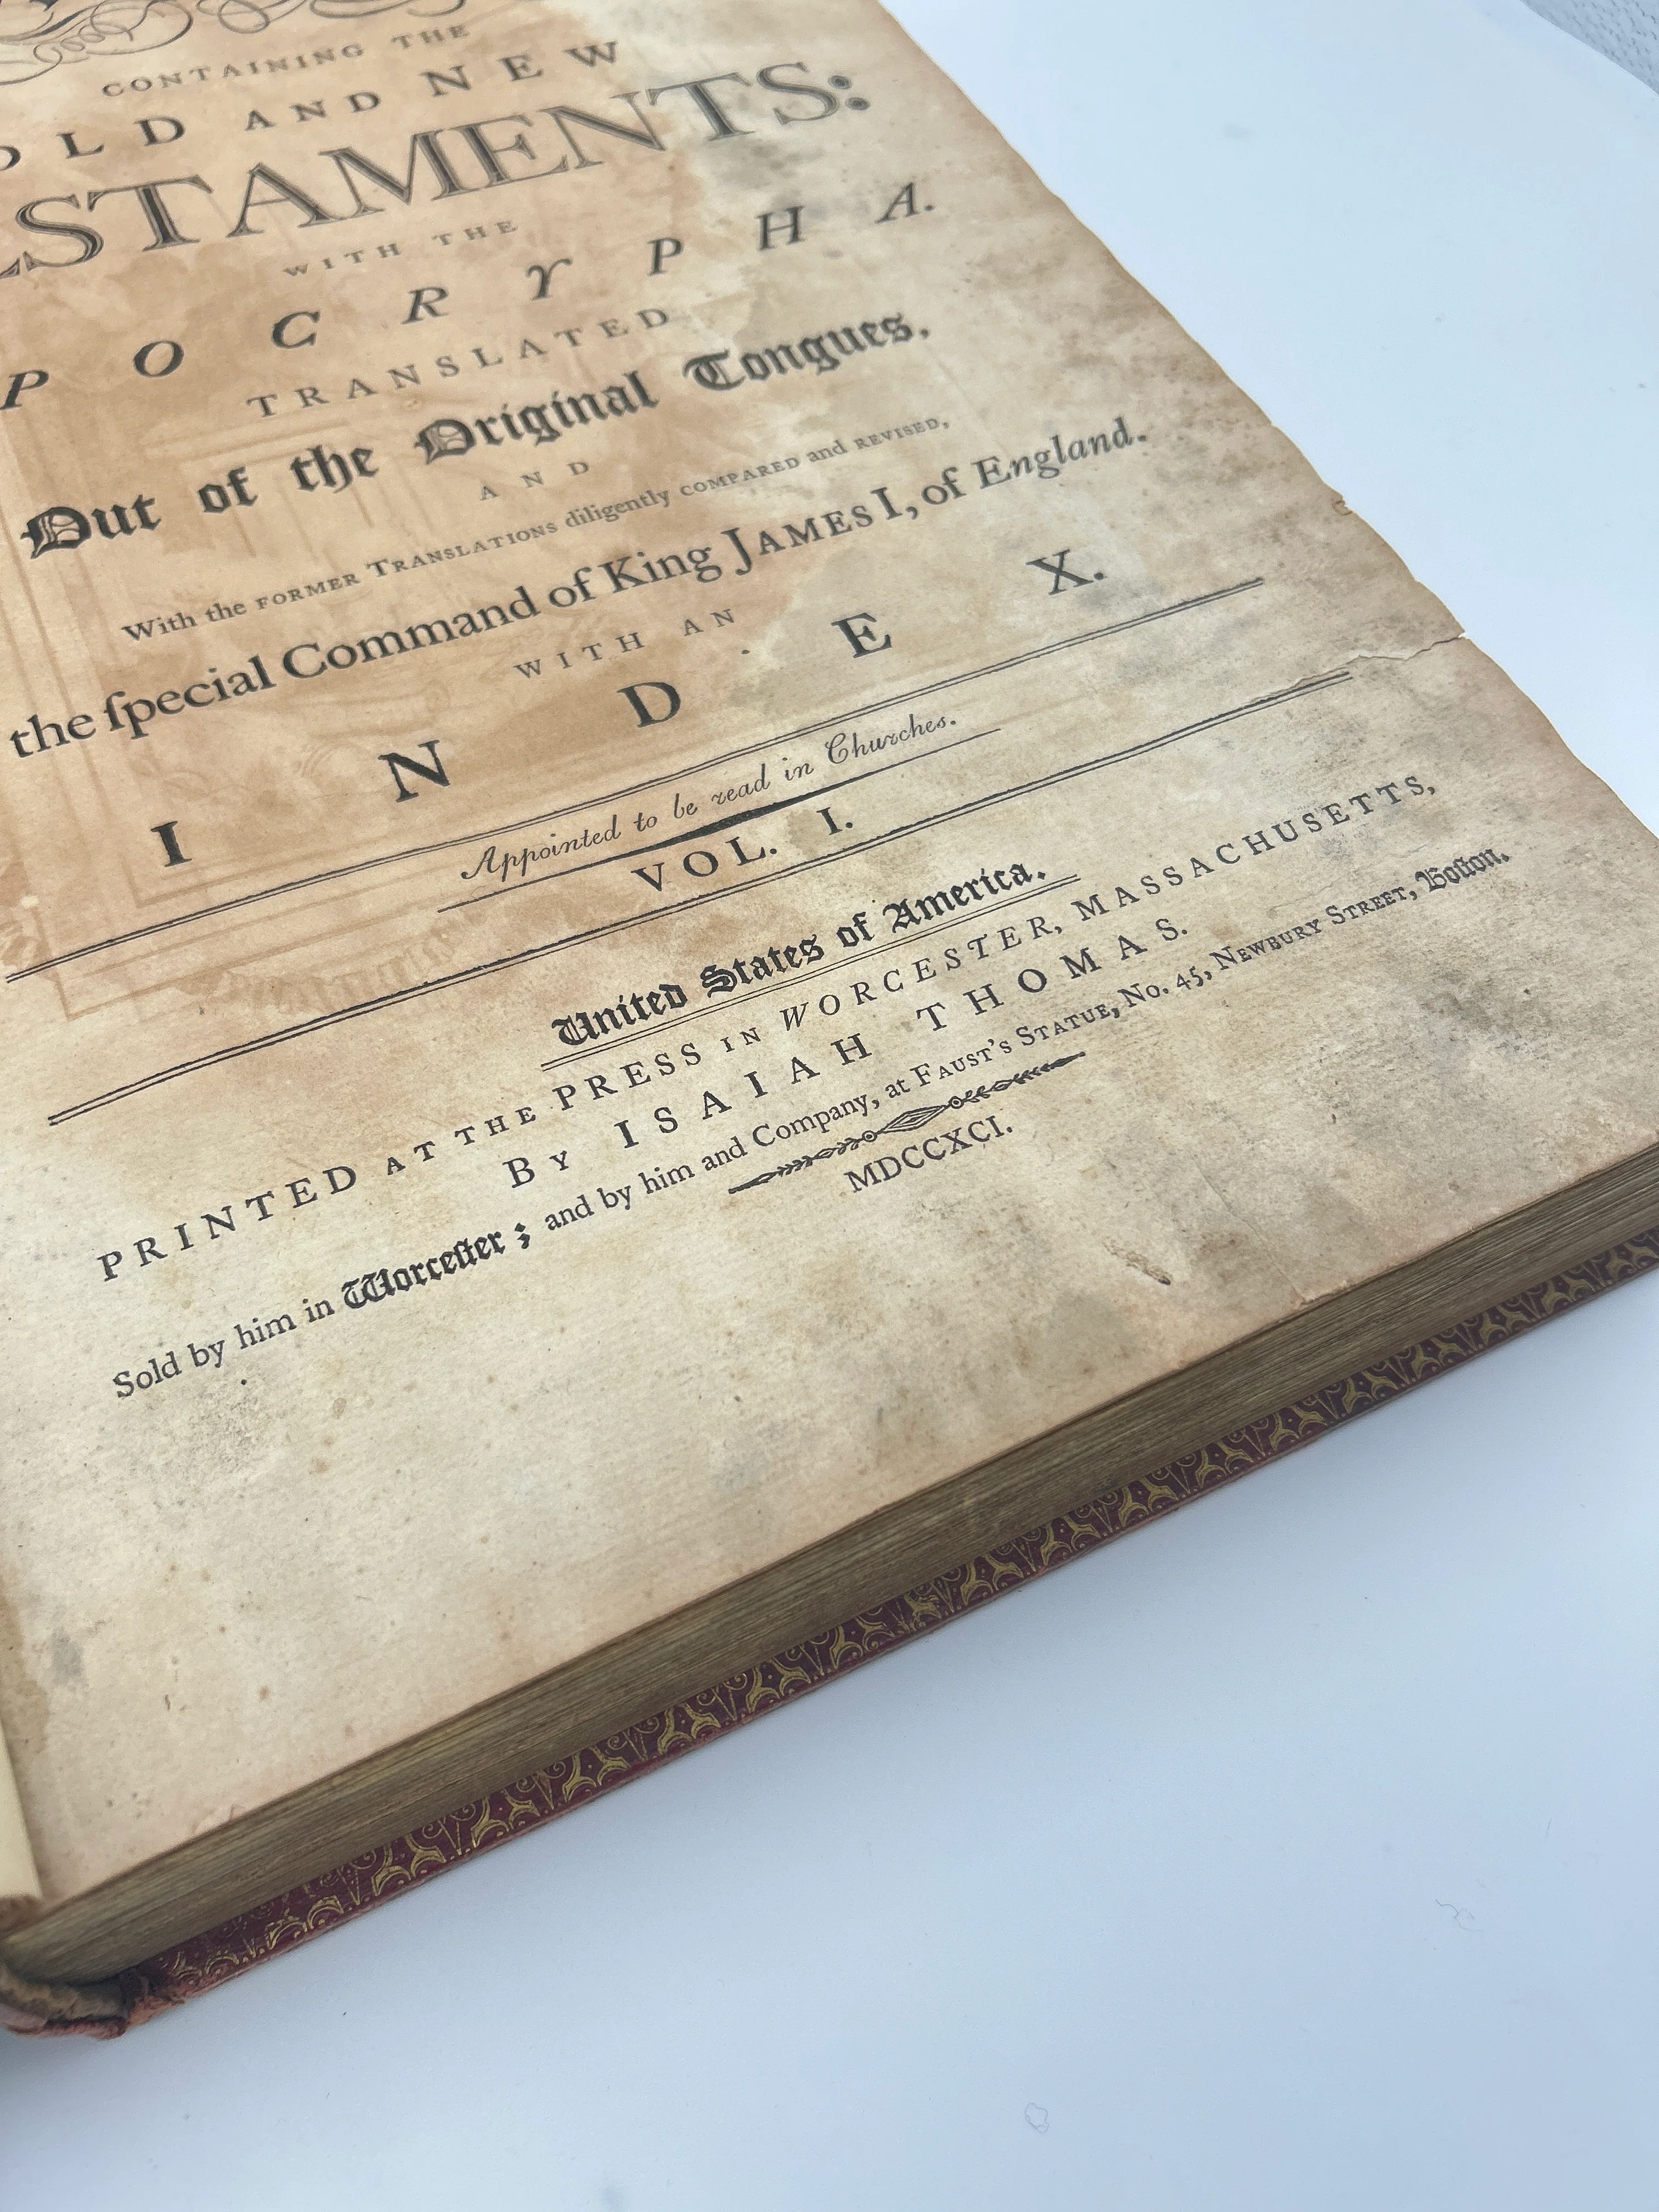 CONTAINING THE
OLD AND NEW
STAMENTS:
WITH THE
POCRYPHA.
TRANSLATED
Out of the Original Tongues,
AND
With the FORMER TRANSLATIONS diligently COMPARED and REVISED,
the ſpecial Command of King JAMES I, of England.
WITH AN
INDEX.
Appointed to be read in Churches.
VOL. I.
United States of America.
PRINTED AT THE PRESS IN WORCESTER, MASSACHUSETTS,
By ISAIAH THOMAS.
Sold by him in Worceſter; and by him and Company, at FAUST'S STATUE, No. 45, NEWBURY STREET, Boſton.
MDCCXCI.